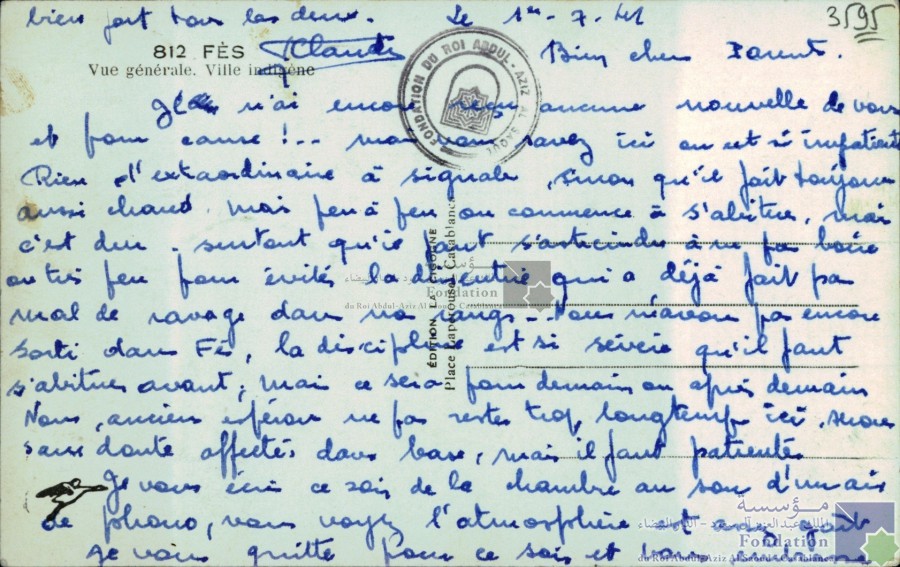 bien fort tous les deux. Le 1er - 7 - 41
3595
812 FÈS Claude Bien chers Parents.
Vue générale. Ville indigène
FONDATION DU ROI ABDUL-AZIZ AL SAOUD
Je n'ai encore reçu aucune nouvelle de vous
et pour cause !.. mais vous savez ici on est si impatients
Rien d'extraordinaire à signaler, sinon qu'il fait toujours
aussi chaud. Mais peu à peu on commence à s'abituer, mais
c'est dur. surtout qu'il faut s'astreindre à ne pas boire
ou très peu pour évités la dysenterie qui a déjà fait pas
mal de ravage dans nos rangs. Nous n'avons pas encore
sorti dans Fès, la discipline est si sévère qu'il faut
s'abituer avant; mais ce sera pour demain ou après demain
Nous, anciens espérons ne pas restes trop longtemps ici,
sans doute affectés dans base, mais il faut patienter
Je vous écris ce soir de la chambre au son d'un air
de phono, vous voyez l'atmosphère est assez
Je vous quitte pour ce soir et vous embrasse
ÉDITION LA CIGOGNE
Place Lapérouse, Casablanca
مؤسسة
الملك عبد العزيز آل سعود - الدار البيضاء
Fondation
du Roi Abdul-Aziz Al Saoud - Casablanca
مؤسسة
الملك عبد العزيز آل سعود - الدار البيضاء
Fondation
du Roi Abdul-Aziz Al Saoud - Casablanca